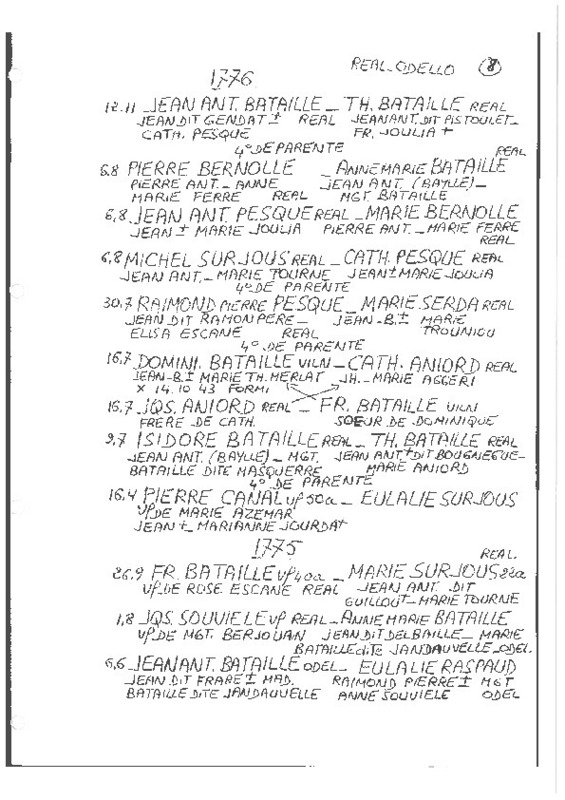 REAL_ODELLO 8
1776
12.11 JEAN ANT. BATAILLE _ TH. BATAILLE REAL
JEAN DIT GENDAT ± REAL JEAN ANT. DIT PISTOULET_
CATH. PESQUE FR. JOULIA +
4° DE PARENTE
REAL
6.8 PIERRE BERNOLLE _ ANNE MARIE BATAILLE
PIERRE ANT. _ ANNE JEAN ANT. (BAYLLE) _
MARIE FERRE REAL MGT. BATAILLE
6,8 JEAN ANT. PESQUE REAL _ MARIE BERNOLLE
JEAN ± MARIE JOULIA PIERRE ANT. _ MARIE FERRE
REAL
6,8 MICHEL SURJOUS REAL _ CATH. PESQUE REAL
JEAN ANT. _ MARIE TOURNE JEAN ± MARIE JOULIA
4° DE PARENTE
30.7 RAIMOND PIERRE PESQUE _ MARIE SERDA REAL
JEAN DIT RAMON PERE _ JEAN-B. ± MARIE
ELISA ESCANE REAL TROUNIOU
4° DE PARENTE
16.7 DOMINI. BATAILLE VILN _ CATH. ANIORD REAL
JEAN-B. ± MARIE TH. MERLAT JH. _ MARIE AGGERI
X 14.10 43 FORMI
16.7 JQS. ANIORD REAL _ FR. BATAILLE VILN
FRERE DE CATH. SOEUR DE DOMINIQUE
9,7 ISIDORE BATAILLE REAL _ TH. BATAILLE REAL
JEAN ANT. (BAYLLE) _ MGT. JEAN ANT + DIT BOUGNEGUE-
BATAILLE DITE MASQUERRE MARIE ANIORD
4° DE PARENTE
16,4 PIERRE CANAL VF 50a _ EULALIE SURJOUS
VF. DE MARIE AZEMAR
JEAN + _ MARIANNE JOURDA +
1775
REAL.
26.9 FR. BATAILLE VF 40a _ MARIE SURJOUS 22a
VF. DE ROSE ESCANE REAL JEAN ANT. DIT
GUILLOUT _ MARIE TOURNE
1,8 JQS. SOUVIELE VF REAL _ ANNE MARIE BATAILLE
VF. DE MGT. BERJOUAN JEAN DIT DELBAILLE _ MARIE
BATAILLE dITE JANDAUVELLE _ ODEL.
6,6 JEAN ANT. BATAILLE ODEL _ EULALIE RASPAUD
JEAN DIT FRARE ± MAD. RAIMOND PIERRE ± MGT
BATAILLE DITE JANDAUVELLE ANNE SOUVIELE ODEL